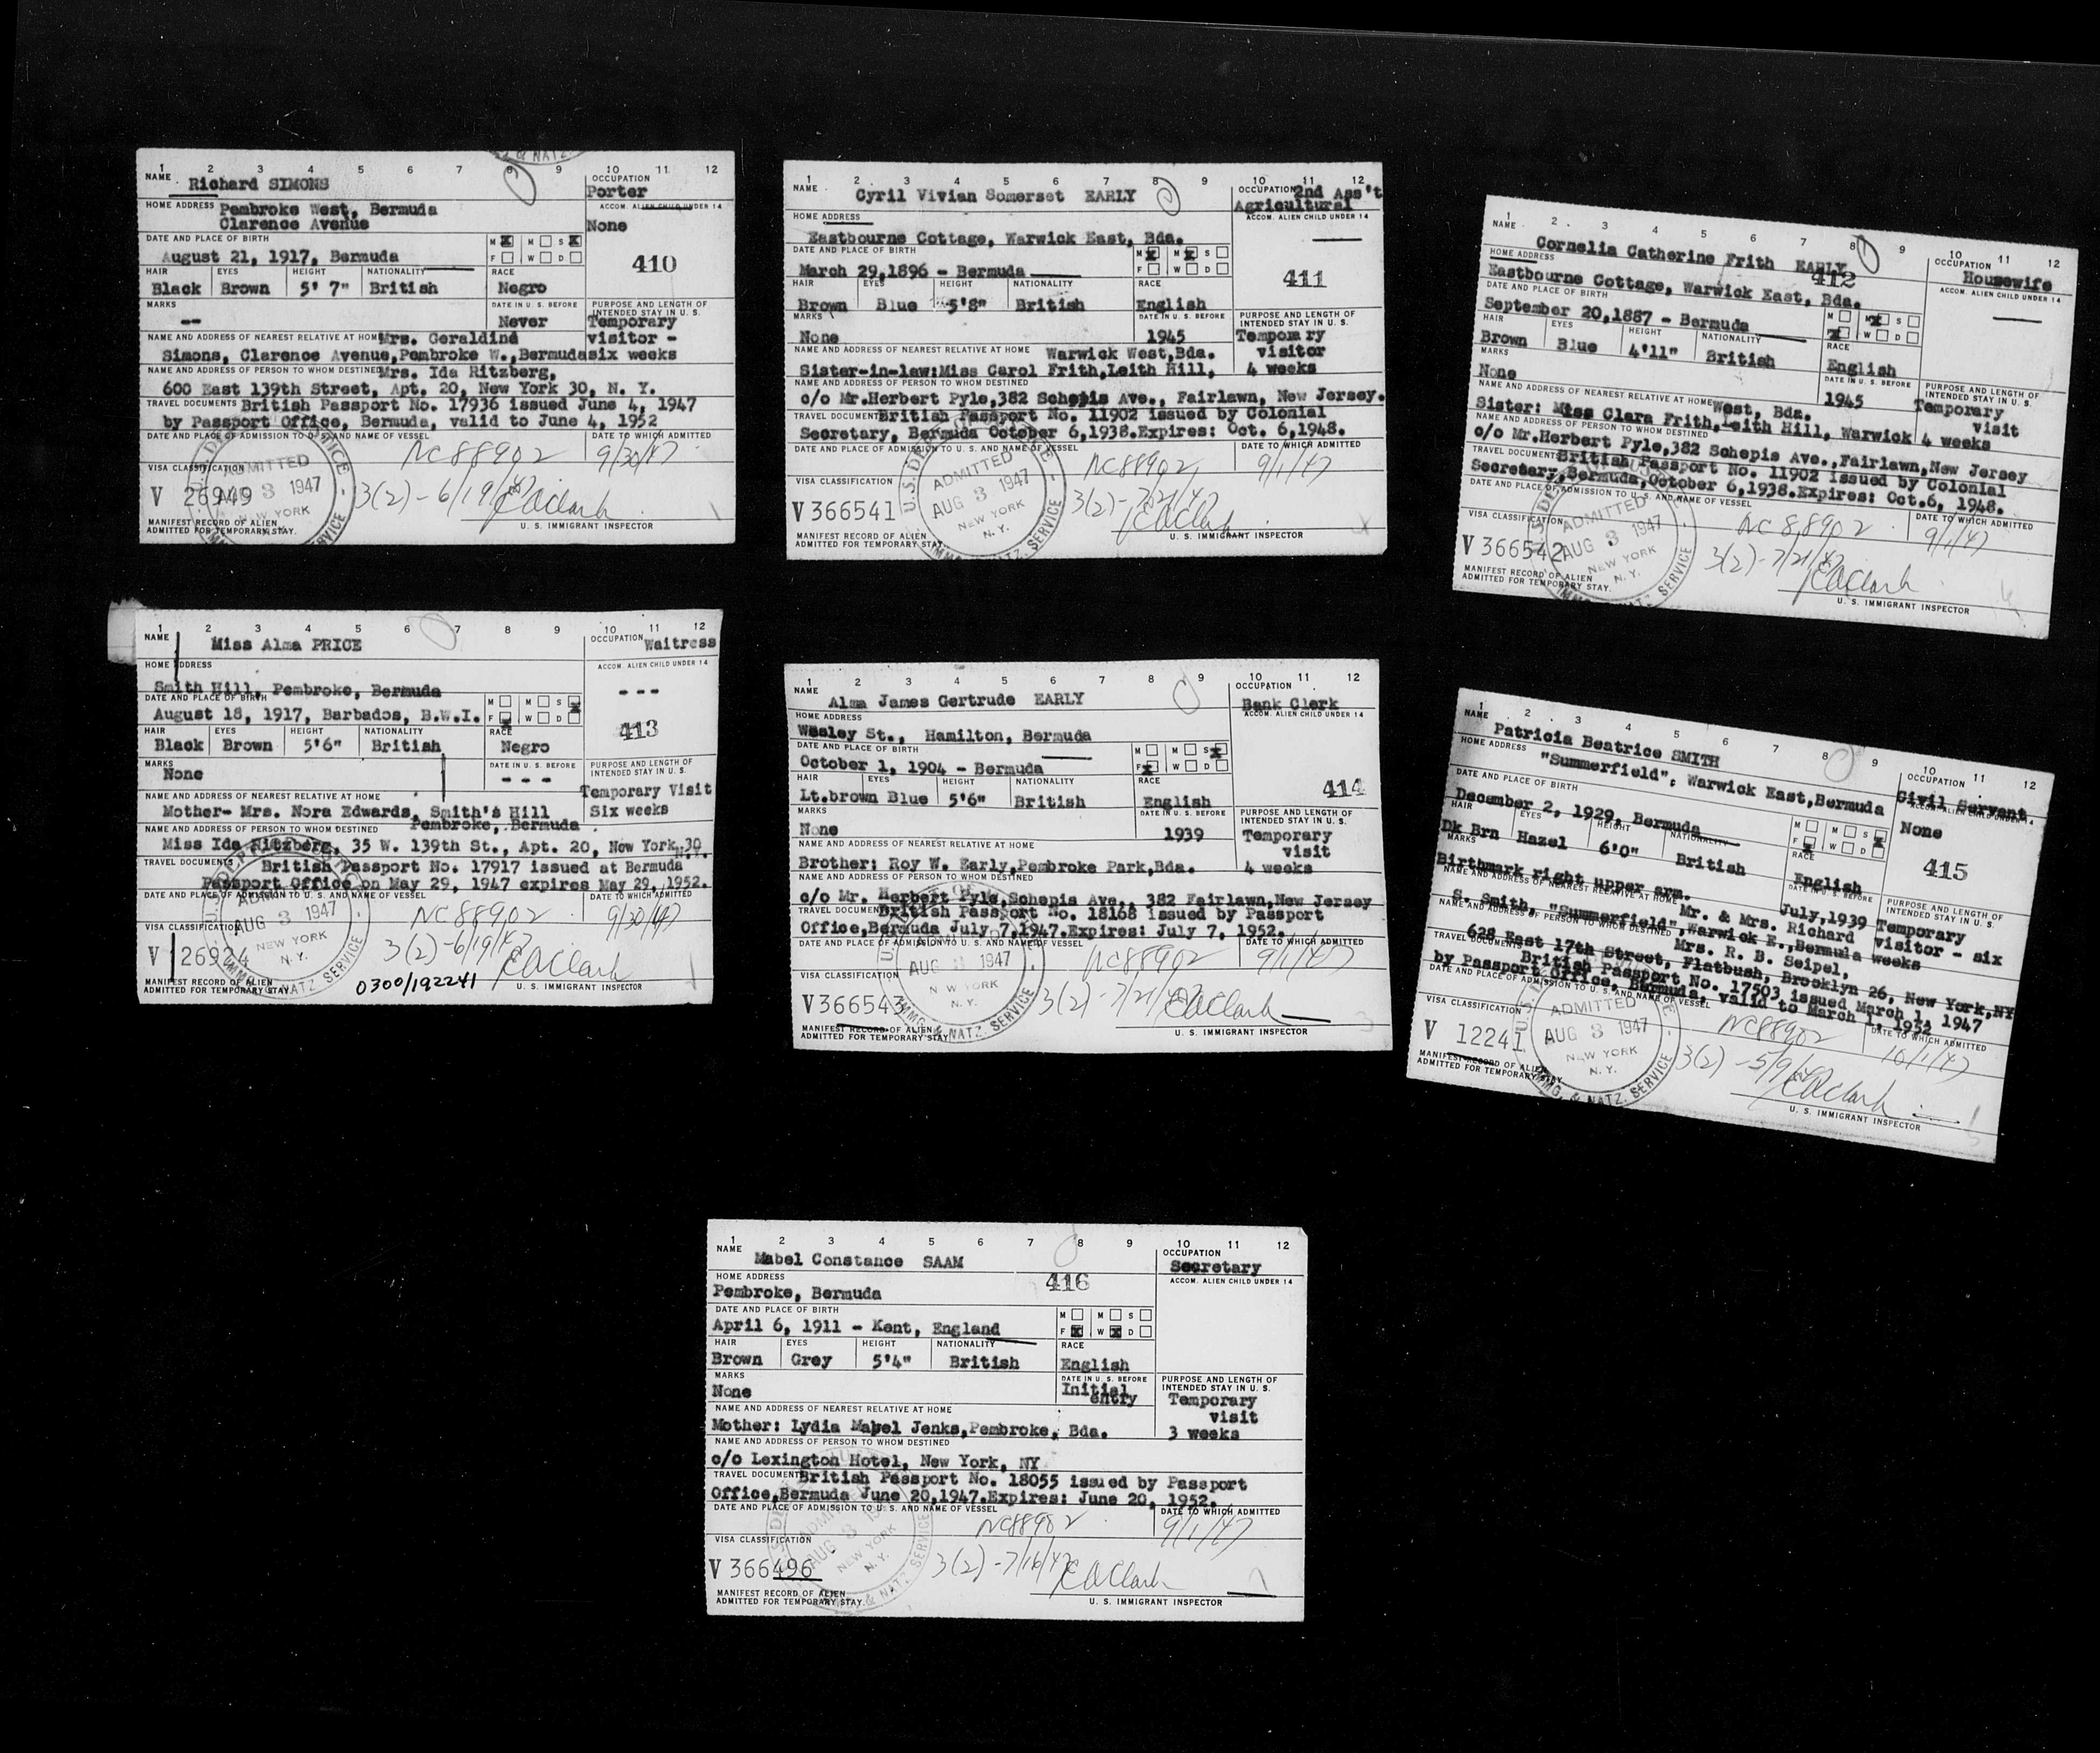 1 2 3 4 5 6 7 8 9 10 11 12
NAME Richard SIMONS
OCCUPATION Porter
HOME ADDRESS Pembroke West, Bermuda
Clarence Avenue
ACCOM. ALIEN CHILD UNDER 14
None
DATE AND PLACE OF BIRTH
August 21, 1917, Bermuda
M X M S X
F W D
410
HAIR EYES HEIGHT NATIONALITY RACE
Black Brown 5' 7" British Negro
MARKS DATE IN U. S. BEFORE PURPOSE AND LENGTH OF INTENDED STAY IN U. S.
-- Never Temporary
NAME AND ADDRESS OF NEAREST RELATIVE AT HOME Mrs. Geraldine visitor -
Simons, Clarence Avenue, Pembroke W., Bermuda six weeks
NAME AND ADDRESS OF PERSON TO WHOM DESTINED Mrs. Ida Ritzberg,
600 East 139th Street, Apt. 20, New York 30, N. Y.
TRAVEL DOCUMENTS British Passport No. 17936 issued June 4, 1947
by Passport Office, Bermuda, valid to June 4, 1952
DATE AND PLACE OF ADMISSION TO U. S. AND NAME OF VESSEL DATE TO WHICH ADMITTED
NC88902 9/30/47
VISA CLASSIFICATION
ADMITTED
AUG 3 1947
NEW YORK
V 26949 3(2) - 6/19/47 EAClark
MANIFEST RECORD OF ALIEN
ADMITTED FOR TEMPORARY STAY.
U. S. IMMIGRANT INSPECTOR
1 2 3 4 5 6 7 8 9 10 11 12
NAME Cyril Vivian Somerset EARLY
OCCUPATION 2nd Ass't
Agricultural
HOME ADDRESS
ACCOM. ALIEN CHILD UNDER 14
Eastbourne Cottage, Warwick East, Bda.
DATE AND PLACE OF BIRTH
M X M X S
F W D
March 29, 1896 - Bermuda
411
HAIR EYES HEIGHT NATIONALITY RACE
Brown Blue 5'8" British English
MARKS DATE IN U. S. BEFORE PURPOSE AND LENGTH OF INTENDED STAY IN U. S.
None 1945 Temporary
NAME AND ADDRESS OF NEAREST RELATIVE AT HOME Warwick West, Bda. visitor
Sister-in-law: Miss Carol Frith, Leith Hill, 4 weeks
NAME AND ADDRESS OF PERSON TO WHOM DESTINED
c/o Mr. Herbert Pyle, 382 Schepis Ave., Fairlawn, New Jersey.
TRAVEL DOCUMENTS British Passport No. 11902 issued by Colonial
Secretary, Bermuda October 6, 1938. Expires: Oct. 6, 1948.
DATE AND PLACE OF ADMISSION TO U. S. AND NAME OF VESSEL DATE TO WHICH ADMITTED
NC88902 9/1/47
VISA CLASSIFICATION
ADMITTED
AUG 3 1947
NEW YORK
N. Y.
V 366541 3(2) - 7/21/47 EAClark
MANIFEST RECORD OF ALIEN
ADMITTED FOR TEMPORARY STAY.
U. S. IMMIGRANT INSPECTOR
1 2 3 4 5 6 7 8 9 10 11 12
NAME Cornelia Catherine Frith EARLY
OCCUPATION Housewife
HOME ADDRESS
412
ACCOM. ALIEN CHILD UNDER 14
Eastbourne Cottage, Warwick East, Bda.
DATE AND PLACE OF BIRTH
September 20, 1887 - Bermuda
M M X S
F X W D
HAIR EYES HEIGHT NATIONALITY RACE
Brown Blue 4'11" British English
MARKS DATE IN U. S. BEFORE PURPOSE AND LENGTH OF INTENDED STAY IN U. S.
None 1945 Temporary
NAME AND ADDRESS OF NEAREST RELATIVE AT HOME West, Bda. visit
Sister: Miss Clara Frith, Leith Hill, Warwick 4 weeks
NAME AND ADDRESS OF PERSON TO WHOM DESTINED
c/o Mr. Herbert Pyle, 382 Schepis Ave., Fairlawn, New Jersey
TRAVEL DOCUMENTS British Passport No. 11902 issued by Colonial
Secretary, Bermuda, October 6, 1938. Expires: Oct. 6, 1948.
DATE AND PLACE OF ADMISSION TO U. S. AND NAME OF VESSEL DATE TO WHICH ADMITTED
NC88902 9/1/47
VISA CLASSIFICATION
ADMITTED
AUG 3 1947
NEW YORK
N. Y.
V 366542 3(2) - 7/21/47 EAClark
MANIFEST RECORD OF ALIEN
ADMITTED FOR TEMPORARY STAY.
U. S. IMMIGRANT INSPECTOR
1 2 3 4 5 6 7 8 9 10 11 12
NAME Miss Alma PRICE
OCCUPATION Waitress
HOME ADDRESS
ACCOM. ALIEN CHILD UNDER 14
Smith Hill, Pembroke, Bermuda
---
DATE AND PLACE OF BIRTH
August 18, 1917, Barbados, B.W.I.
M M S X
F X W D
413
HAIR EYES HEIGHT NATIONALITY RACE
Black Brown 5'6" British Negro
MARKS DATE IN U. S. BEFORE PURPOSE AND LENGTH OF INTENDED STAY IN U. S.
None ---
NAME AND ADDRESS OF NEAREST RELATIVE AT HOME Temporary Visit
Mother- Mrs. Nora Edwards, Smith's Hill Six weeks
NAME AND ADDRESS OF PERSON TO WHOM DESTINED Pembroke, Bermuda
Miss Ida Ritzberg, 35 W. 139th St., Apt. 20, New York 30 N.Y.
TRAVEL DOCUMENTS British Passport No. 17917 issued at Bermuda
Passport Office on May 29, 1947 expires May 29, 1952.
DATE AND PLACE OF ADMISSION TO U. S. AND NAME OF VESSEL DATE TO WHICH ADMITTED
NC88902 9/30/47
VISA CLASSIFICATION
AUG 3 1947
NEW YORK
N. Y.
V 26924 3(2) - 6/19/47 EAClark
MANIFEST RECORD OF ALIEN
ADMITTED FOR TEMPORARY STAY.
0300/192241
U. S. IMMIGRANT INSPECTOR
1 2 3 4 5 6 7 8 9 10 11 12
NAME Alma James Gertrude EARLY
OCCUPATION Bank Clerk
HOME ADDRESS
ACCOM. ALIEN CHILD UNDER 14
Wesley St., Hamilton, Bermuda
DATE AND PLACE OF BIRTH
October 1, 1904 - Bermuda
M M S X
F X W D
414
HAIR EYES HEIGHT NATIONALITY RACE
Lt.brown Blue 5'6" British English
MARKS DATE IN U. S. BEFORE PURPOSE AND LENGTH OF INTENDED STAY IN U. S.
None 1939 Temporary
NAME AND ADDRESS OF NEAREST RELATIVE AT HOME visit
Brother: Roy W. Early, Pembroke Park, Bda. 4 weeks
NAME AND ADDRESS OF PERSON TO WHOM DESTINED
c/o Mr. Herbert Pyle, Schepis Ave., 382 Fairlawn, New Jersey
TRAVEL DOCUMENTS British Passport No. 18168 issued by Passport
Office, Bermuda July 7, 1947. Expires: July 7, 1952.
DATE AND PLACE OF ADMISSION TO U. S. AND NAME OF VESSEL DATE TO WHICH ADMITTED
NC88902 9/1/47
VISA CLASSIFICATION
AUG 3 1947
NEW YORK
N. Y.
V 366543 3(2) - 7/21/47 EAClark
MANIFEST RECORD OF ALIEN
ADMITTED FOR TEMPORARY STAY
U. S. IMMIGRANT INSPECTOR
1 2 3 4 5 6 7 8 9 10 11 12
NAME Patricia Beatrice SMITH
OCCUPATION Civil Servant
HOME ADDRESS "Summerfield"; Warwick East, Bermuda
ACCOM. ALIEN CHILD UNDER 14
None
DATE AND PLACE OF BIRTH
December 2, 1929, Bermuda
M M S X
F X W D
415
HAIR EYES HEIGHT NATIONALITY RACE
Dk Brn Hazel 6'0" British English
MARKS DATE IN U. S. BEFORE PURPOSE AND LENGTH OF INTENDED STAY IN U. S.
Birthmark right upper arm. July, 1939 Temporary
NAME AND ADDRESS OF NEAREST RELATIVE AT HOME Mr. & Mrs. Richard visitor - six
S. Smith, "Summerfield", Warwick E., Bermuda weeks
NAME AND ADDRESS OF PERSON TO WHOM DESTINED Mrs. R. B. Seipel,
628 East 17th Street, Flatbush, Brooklyn 26, New York, NY
TRAVEL DOCUMENTS British Passport No. 17503 issued March 1, 1947
by Passport Office, Bermuda, valid to March 1, 1952
DATE AND PLACE OF ADMISSION TO U. S. AND NAME OF VESSEL DATE TO WHICH ADMITTED
NC88902 10/1/47
VISA CLASSIFICATION
ADMITTED
AUG 3 1947
NEW YORK
N. Y.
V 12241 3(2) - 5/9/47 EAClark
MANIFEST RECORD OF ALIEN
ADMITTED FOR TEMPORARY STAY
U. S. IMMIGRANT INSPECTOR
1 2 3 4 5 6 7 8 9 10 11 12
NAME Mabel Constance SAAM
OCCUPATION Secretary
HOME ADDRESS
416
ACCOM. ALIEN CHILD UNDER 14
Pembroke, Bermuda
DATE AND PLACE OF BIRTH
April 6, 1911 - Kent, England
M M S
F X W X D
HAIR EYES HEIGHT NATIONALITY RACE
Brown Grey 5'4" British English
MARKS DATE IN U. S. BEFORE PURPOSE AND LENGTH OF INTENDED STAY IN U. S.
None Initial entry Temporary
NAME AND ADDRESS OF NEAREST RELATIVE AT HOME visit
Mother: Lydia Mabel Jenks, Pembroke, Bda. 3 weeks
NAME AND ADDRESS OF PERSON TO WHOM DESTINED
c/o Lexington Hotel, New York, NY
TRAVEL DOCUMENTS British Passport No. 18055 issued by Passport
Office, Bermuda June 20, 1947. Expires: June 20, 1952.
DATE AND PLACE OF ADMISSION TO U. S. AND NAME OF VESSEL DATE TO WHICH ADMITTED
NC88902 9/1/47
VISA CLASSIFICATION
ADMITTED
AUG 3 1947
NEW YORK
N. Y.
V 366496 3(2) - 7/16/47 EAClark
MANIFEST RECORD OF ALIEN
ADMITTED FOR TEMPORARY STAY.
U. S. IMMIGRANT INSPECTOR